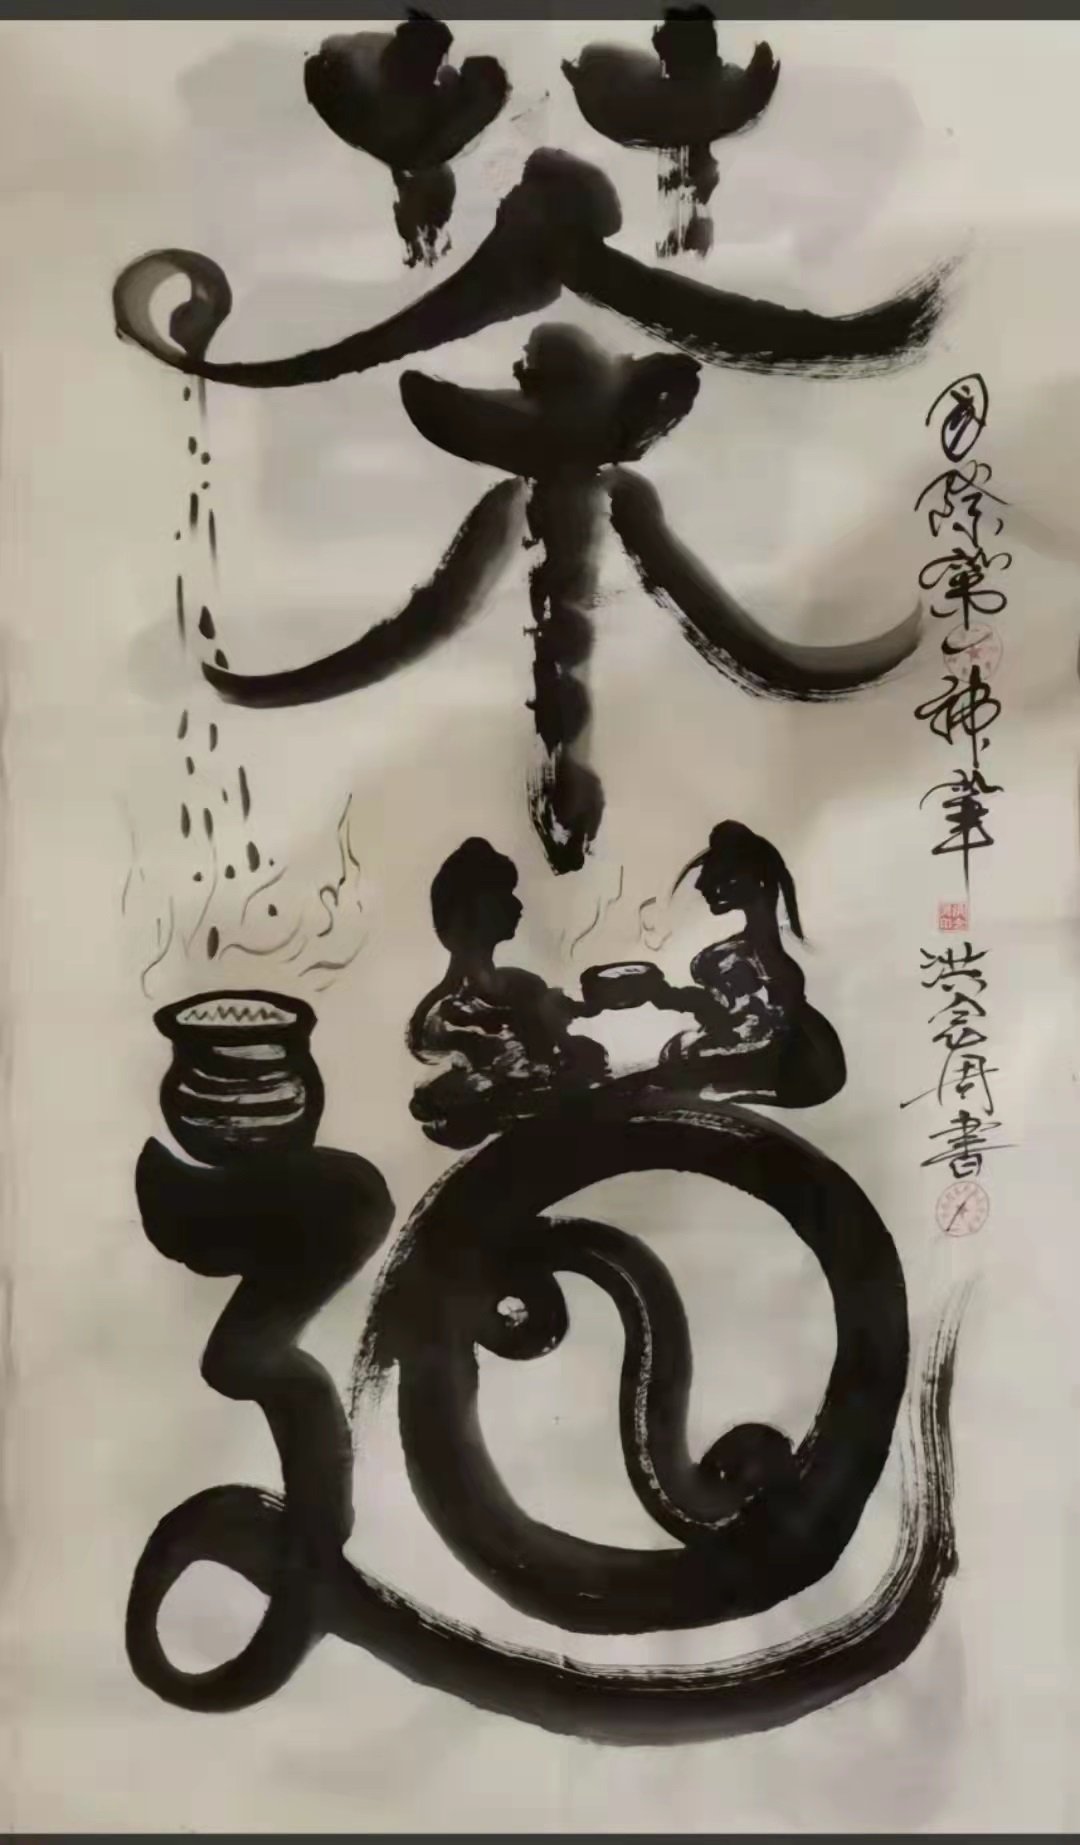 茶道
國際第一神筆
洪念周書